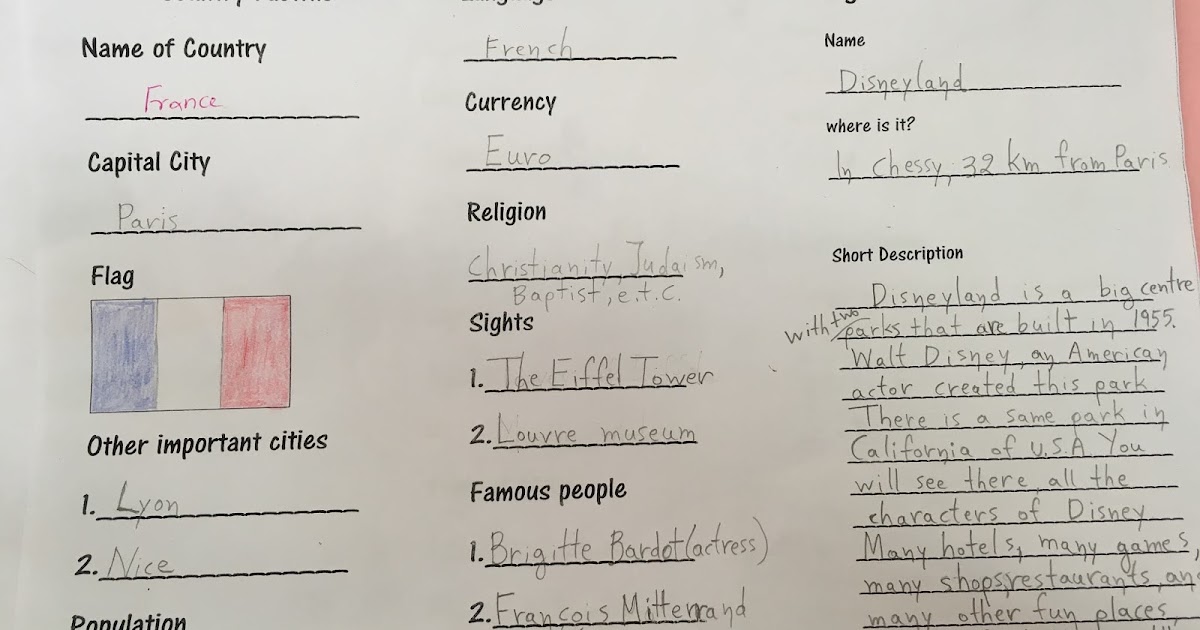 Name of Country
France
Capital City
Paris
Flag
Other important cities
1. Lyon
2. Nice
Population
French
Currency
Euro
Religion
Christianity, Judaism,
Baptist, e.t.c.
Sights
1. The Eiffel Tower
2. Louvre museum
Famous people
1. Brigitte Bardot (actress)
2. François Mitterrand
Name
Disneyland
where is it?
In Chessy, 32 km from Paris
Short Description
Disneyland is a big centre
with two parks that are built in 1955.
Walt Disney, an American
actor created this park
There is a same park in
California of U.S.A. You
will see there, all the
characters of Disney
Many hotels, many games,
many shops, restaurants, and
many other fun places,